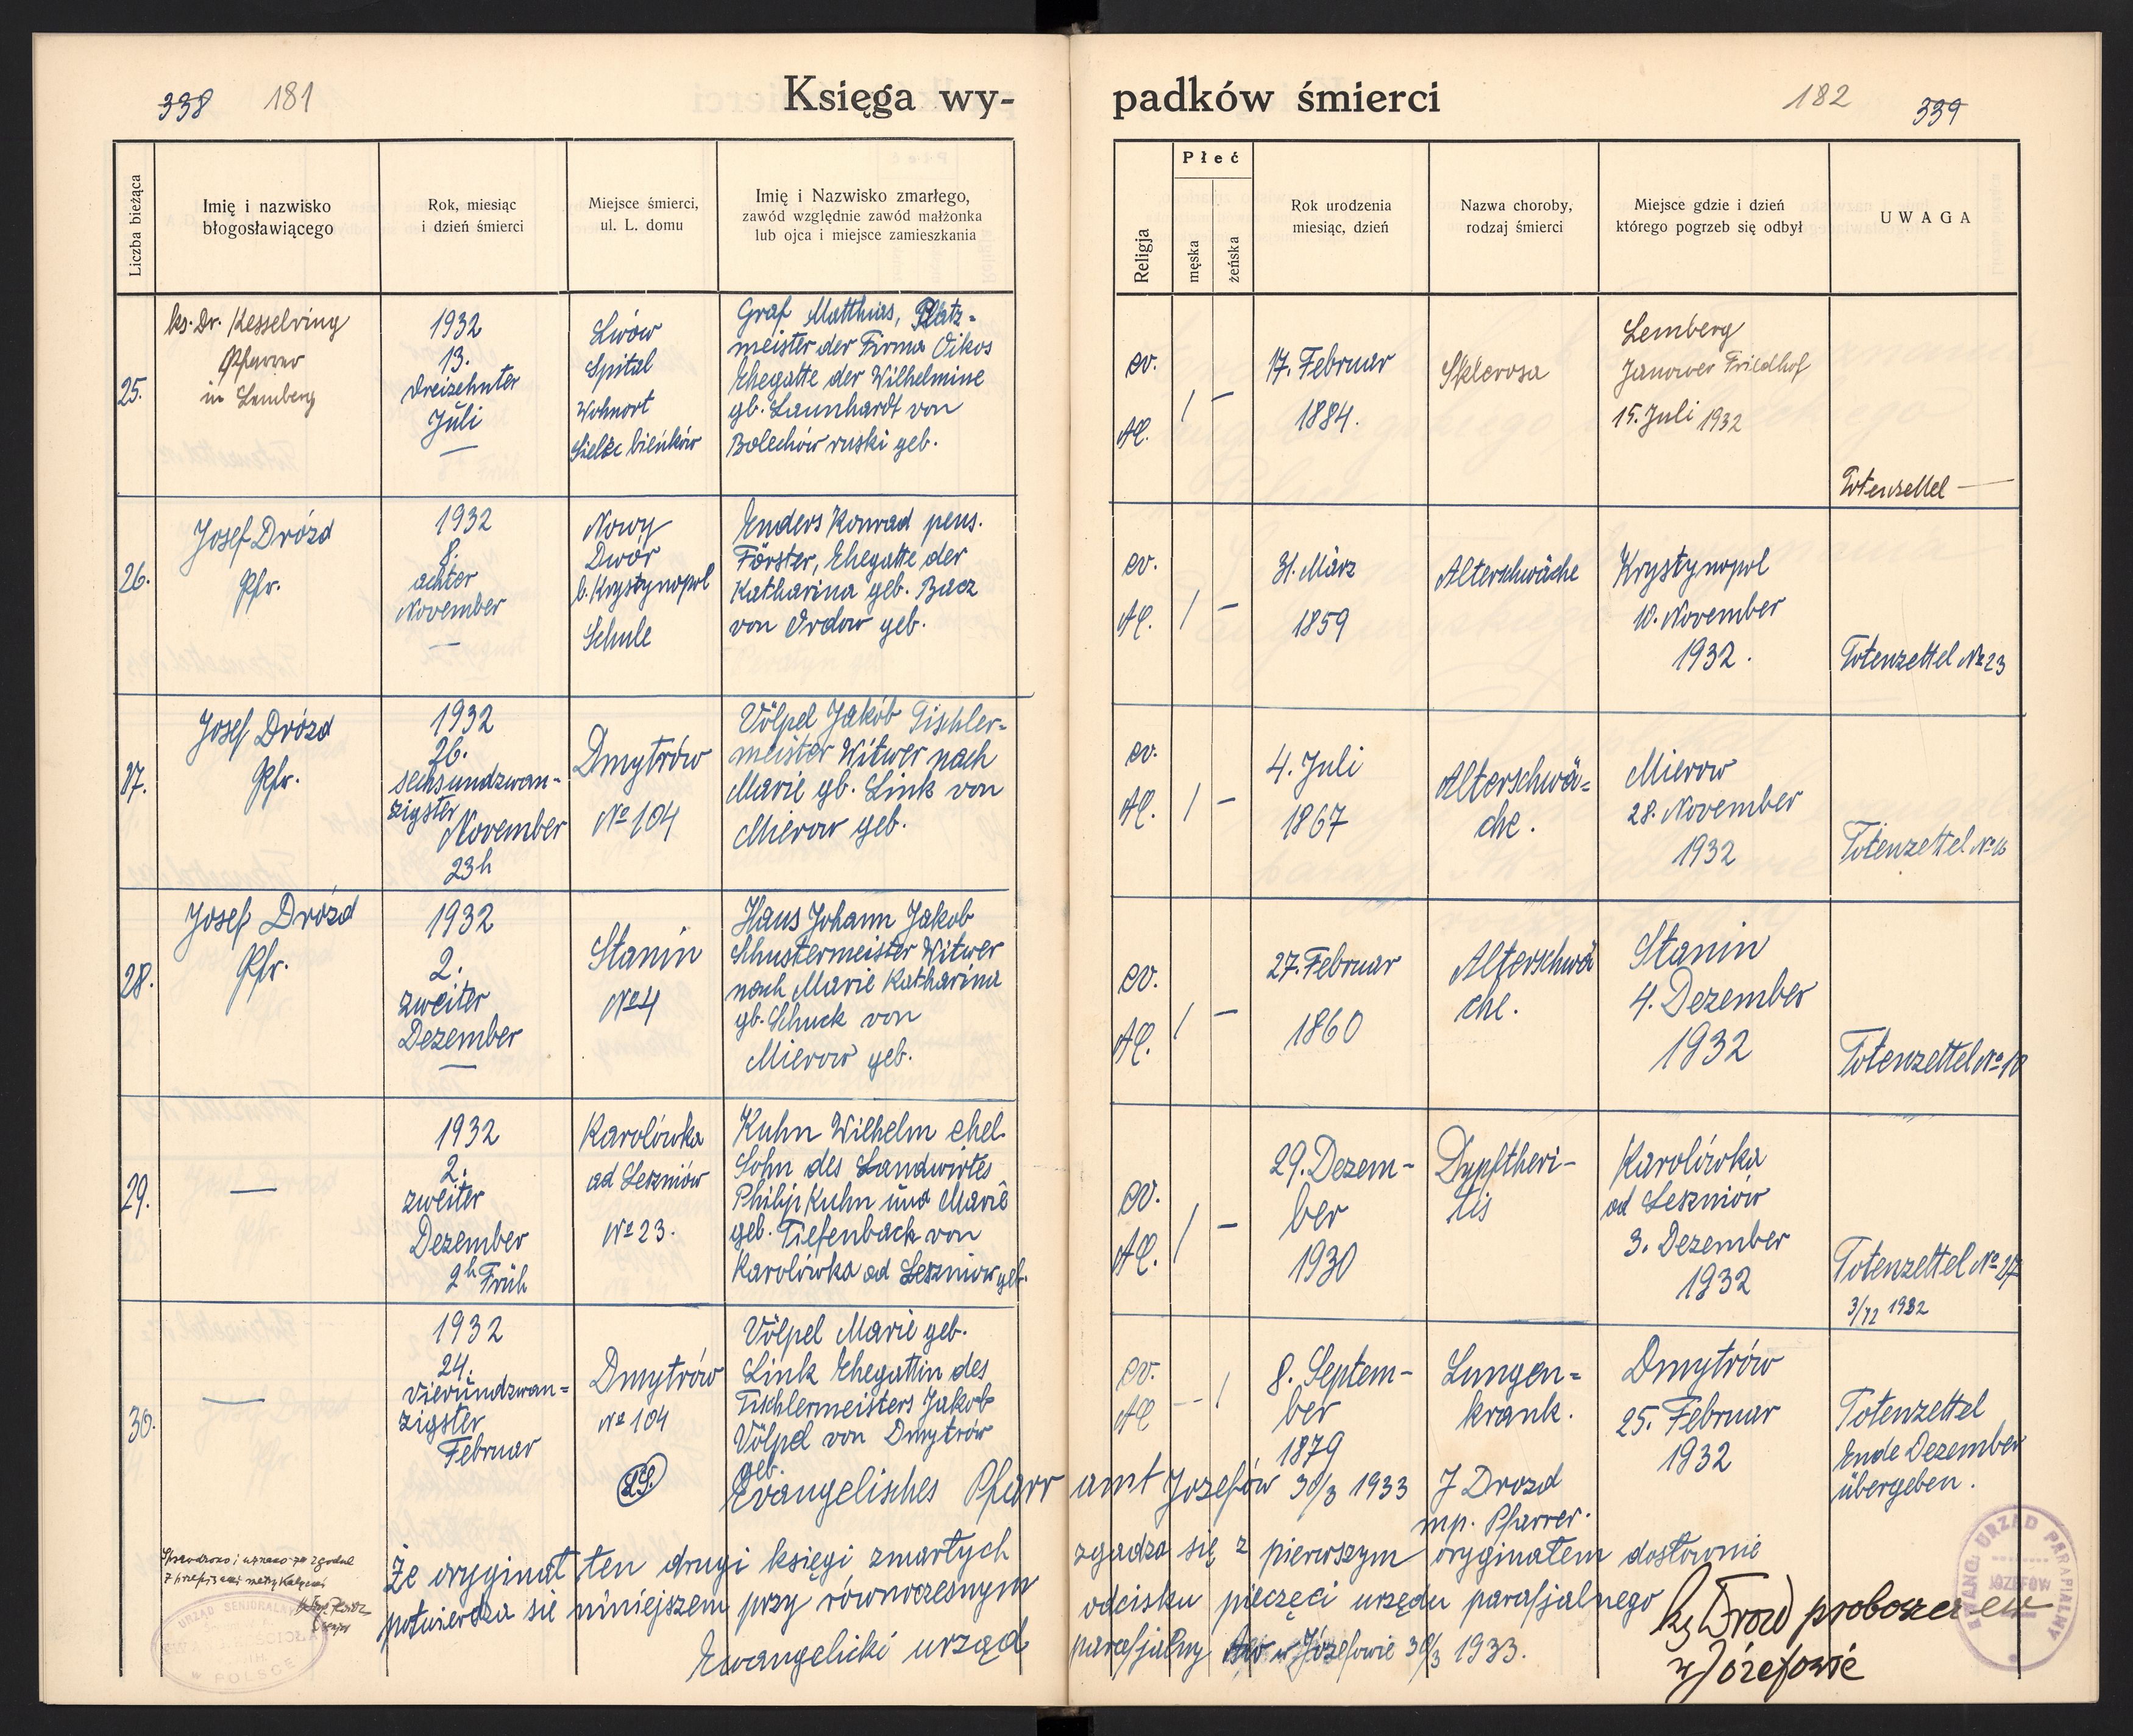 338 181
Księga wy-
padków śmierci
182 339
Liczba bieżąca
Imię i nazwisko
błogosławiącego
Rok, miesiąc
i dzień śmierci
Miejsce śmierci,
ul. L. domu
Imię i Nazwisko zmarłego,
zawód względnie zawód małżonka
lub ojca i miejsce zamieszkania
Religja
Płeć
męska
żeńska
Rok urodzenia
miesiąc, dzień
Nazwa choroby,
rodzaj śmierci
Miejsce gdzie i dzień
którego pogrzeb się odbył
UWAGA
25.
ks. Dr. Kesselring
Pfarrer
in Lemberg
1932
13.
dreizehnter
Juli
Lwów
Spital
Wohnort
Sielec bieńków
Graf Matthias, Platz-
meister der Firma Oikos
Ehegatte der Wilhelmine
gb. Launhardt von
Bolechów ruski geb.
ev.
AC.
/ –
17. Februar
1884.
Sklerosa
Lemberg
Janower Friedhof
15. Juli 1932
Totenzettel —
26.
Josef Drózd
Pfr.
1932
8.
achter
November
Nowy
Dwór
b. Krystynopol
Schule
Enders Konrad pens.
Förster, Ehegatte der
Katharina geb. Bacz
von Ordow geb.
ev.
AC.
/ –
31. März
1859
Alterschwäche
Krystynopol
10. November
1932.
Totenzettel № 23
27.
Josef Drózd
Pfr.
1932
26.
sechsundzwan-
zigster
November
23h
Dmytrów
№ 104
Völpel Jakób Tischler-
meister Witwer nach
Marie gb. Link von
Mierow geb.
ev.
AC.
/ –
4. Juli
1867
Alterschwä-
che.
Mierow
28. November
1932
Totenzettel № 16
28.
Josef Drózd
Pfr.
1932
2.
zweiter
Dezember
Stanin
№ 4
Haus Johann Jakob
Schustermeister Witwer
nach Marie Katharina
gb. Schuck von
Mierow geb.
ev.
AC.
/ –
27. Februar
1860
Alterschwä
che.
Stanin
4. Dezember
1932
Totenzettel № 18
29.
—
1932
2.
zweiter
Dezember
2h Früh
Karolówka
ad Leszniów
№ 23.
Kuhn Wilhelm ehel.
Sohn des Landwirtes
Philip Kuhn und Marie
geb. Tiefenbach von
Karolówka ad Leszniow geb.
ev.
AC.
/ –
29. Dezem-
ber
1930
Dypftheri-
tis
Karolówka
ad Leszniów
3. Dezember
1932
Totenzettel № 27
3/12 1932
30.
—
1932
24.
vierundzwan-
zigster
Februar
Dmytrów
№ 104
Völpel Marie geb.
Link Ehegattin des
Tischlermeisters Jakob
Völpel von Dmytrów
geb.
ev.
AC
– /
8. Septem-
ber
1879
Lungen-
krank.
Dmytrów
25. Februar
1932
Totenzettel
Ende Dezember
übergeben.
LS.
Evangelisches Pfarramt Jozefów 30/3 1933 J Drozd
mp. Pfarrer.
Że oryginał ten drugi księgi zmarłych zgadza się z pierwszym oryginałem dosłownie
potwierdza się niniejszem przy równoczesnym odcisku pieczęci urzędu parafjalnego
Ewangelicki urząd parafjalny w Józefowie 30/3 1933.
Ks Drozd proboszcz ew
w Józefowie
EWANG. URZĄD PARAFIALNY
JÓZEFÓW
URZĄD SENIORALNY
W POLSCE